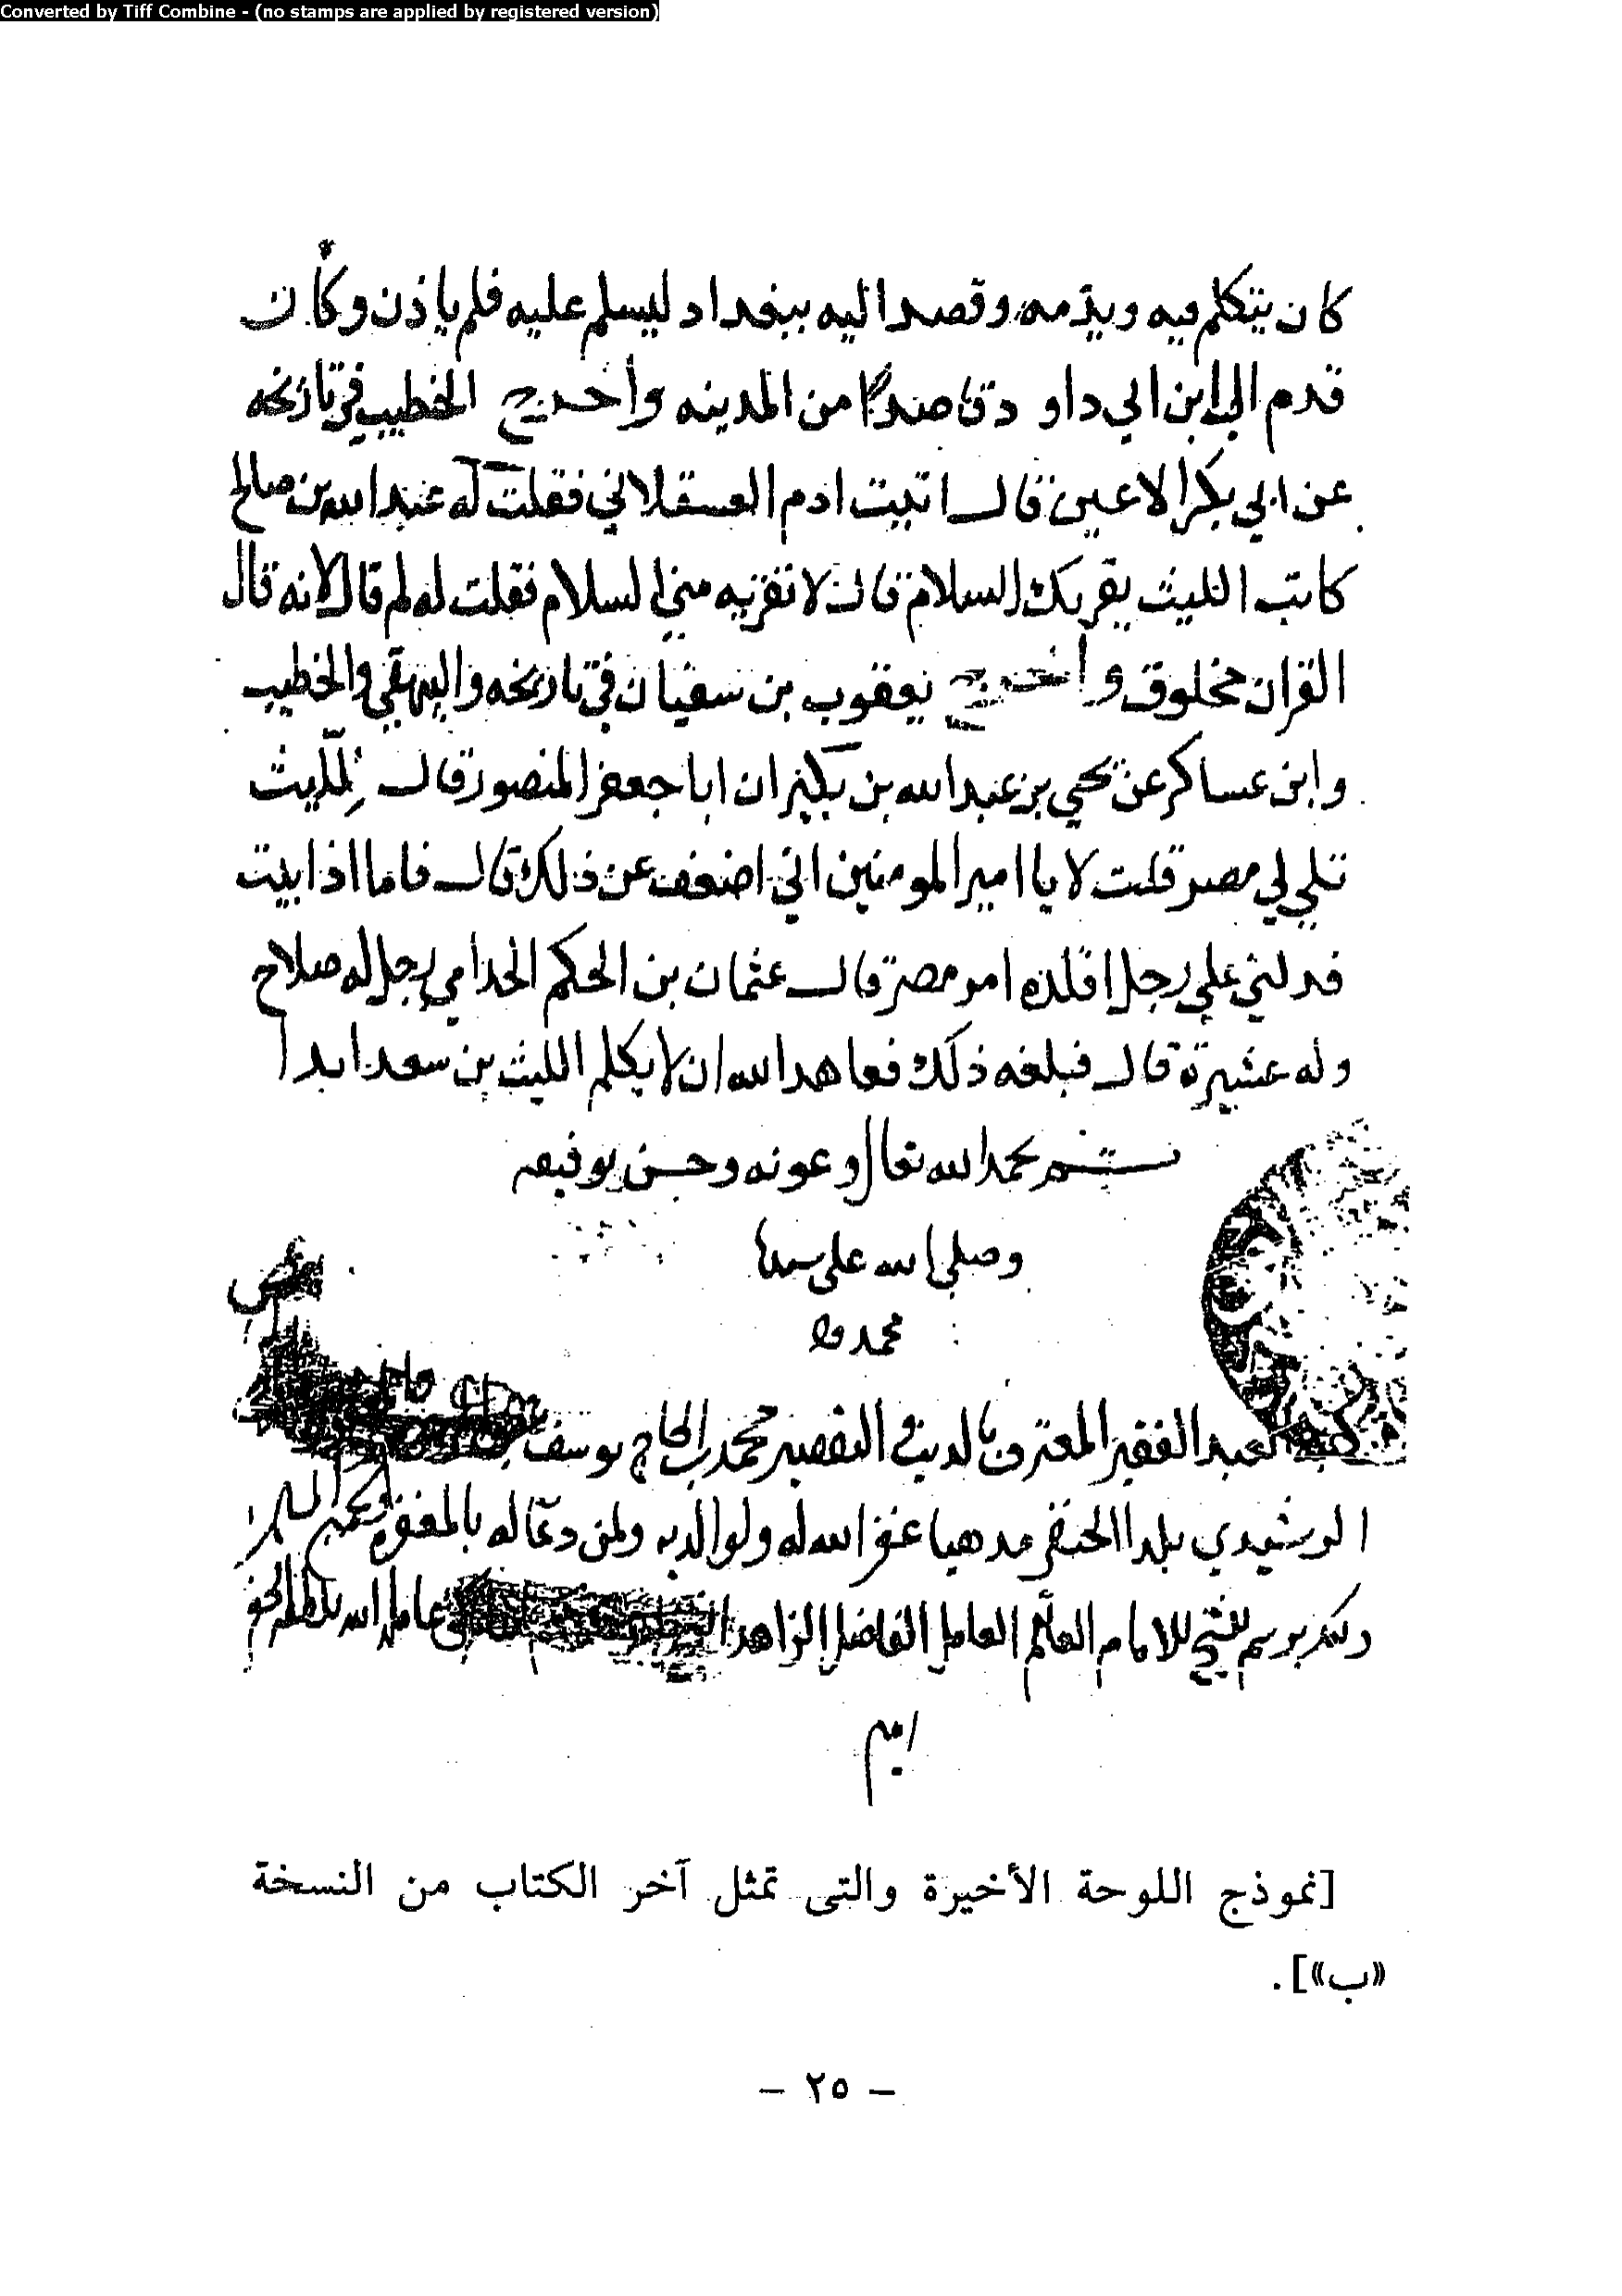 Converted by Tiff Combine - (no stamps are applied by registered version)
كان يتكلم فيه ويذمه وقصد اليه ببغداد ليسلم عليه فلم ياذن وكان
قدم الي ابن ابي داود قاصدا من المدينه واخرج الخطيب في تاريخه
عن ابي بكر الاعين قال اتيت ادم العسقلاني فقلت له عبد الله بن صالح
كاتب الليث يقريك السلام قال لا تقريه مني السلام فقلت له لم قال لانه قال
القران مخلوق واخرج يعقوب بن سفيان في تاريخه والبيهقي والخطيب
وابن عساكر عن يحي بن عبد الله بن بكير ان ابا جعفر المنصور قال لليث
تلي لي مصر قلت لا يا امير المومنين اني اضعف عن ذلك قال فاما اذا ابيت
فدلني علي رجل اقلده امر مصر قال عثمان بن الحكم الجدامي رجل له صلاح
وله عشيرة قال فبلغه ذلك فعاهد الله ان لا يكلم الليث بن سعد ابدا
تم بحمد الله تعالى وعونه وحسن توفيقه
وصلى الله على سيدنا
محمد واله
كتبه العبد الفقير المعترف بالذنب والتقصير محمد بن الحاج يوسف
الرشيدي بلدا الحنفي مذهبا غفر الله له ولوالديه ولمن دعا له بالمغفرة
وذلك برسم الشيخ الامام العالم العامل الفاضل الزاهد عامله الله بلطفه الخفي
امين
[نموذج اللوحة الأخيرة والتى تمثل آخر الكتاب من النسخة
«ب»].
– ٢٥ –